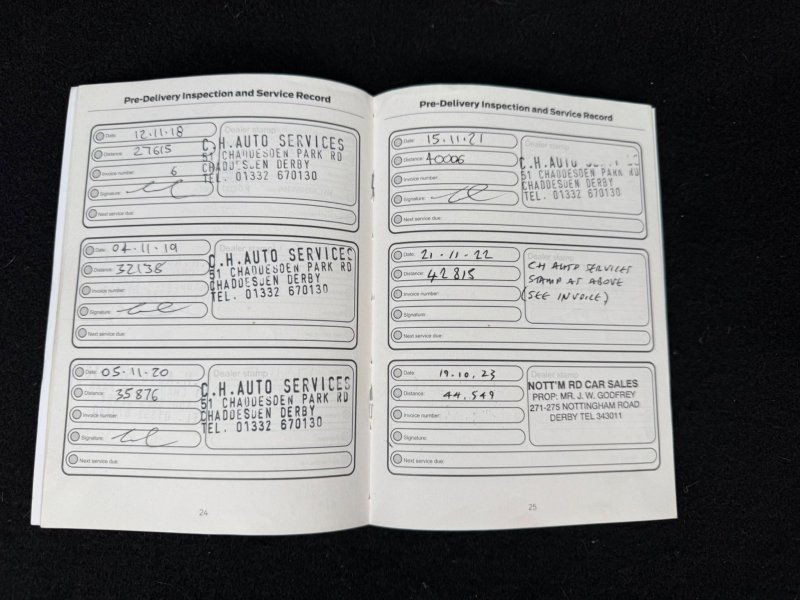 Pre-Delivery Inspection and Service Record
Date: 12.11.18
Distance: 27615
Invoice number: 6
Signature:
Next service due:
Dealer stamp
C.H.AUTO SERVICES
51 CHADDESDEN PARK RD
CHADDESDEN DERBY
TEL. 01332 670130
Date: 04.11.19
Distance: 32138
Invoice number:
Signature:
Next service due:
C.H.AUTO SERVICES
51 CHADDESDEN PARK RD
CHADDESDEN DERBY
TEL. 01332 670130
Date: 05.11.20
Distance: 35876
Invoice number:
Signature:
Next service due:
Dealer stamp
C.H.AUTO SERVICES
51 CHADDESDEN PARK RD
CHADDESDEN DERBY
TEL. 01332 670130
24
Pre-Delivery Inspection and Service Record
Date: 15.11.21
Distance: 40006
Invoice number:
Signature:
Next service due:
Dealer stamp
C.H.AUTO
51 CHADDESDEN PARK RD
CHADDESDEN DERBY
TEL. 01332 670130
Date: 21.11.22
Distance: 42815
Invoice number:
Signature:
Next service due:
Dealer stamp
CH AUTO SERVICES
STAMP AS ABOVE
(SEE INVOICE)
Date: 19.10.23
Distance: 44,549
Invoice number:
Signature:
Next service due:
Dealer stamp
NOTT'M RD CAR SALES
PROP: MR. J. W. GODFREY
271-275 NOTTINGHAM ROAD
DERBY TEL 343011
25